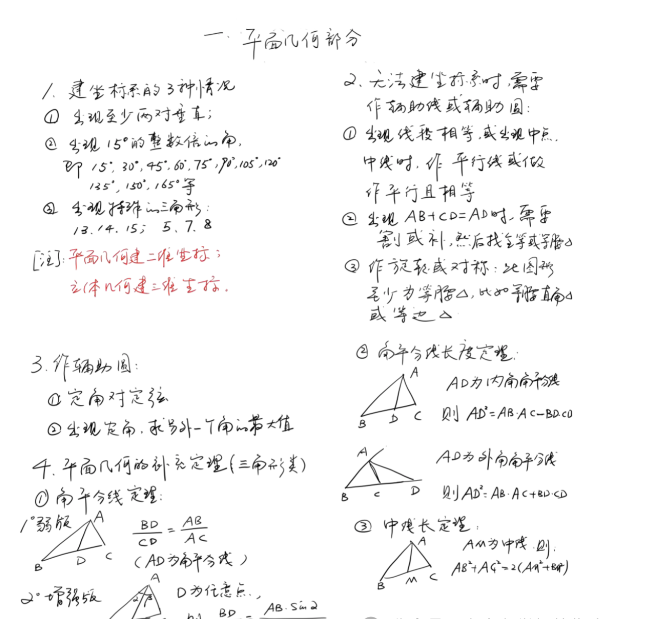 一. 平面几何部分
1. 建坐标系的3种情况
① 出现至少两对垂直;
② 出现15°的整数倍的角,
即 15°, 30°, 45°, 60°, 75°, 90°, 105°, 120°
135°, 150°, 165°等
③ 出现特殊的三角形:
13. 14. 15; 5. 7. 8
[注]: 平面几何建二维坐标;
立体几何建三维坐标.
2. 无法建坐标系时, 需要
作辅助线或辅助圆:
① 出现线段相等, 或出现中点,
中线时, 作平行线或做
作平行且相等
② 出现 AB+CD=AD时, 需要
割或补, 然后找全等或等腰△
③ 作旋转或对称: 此图形
至少为等腰△, 比如等腰直角△
或等边△
3. 作辅助圆:
① 定角对定弦
② 出现定角, 求另外一个角的最大值
4. 平面几何的补充定理(三角形类)
① 角平分线定理:
1° 弱版
A
B
D
C
BD/CD = AB/AC
(AD为角平分线)
2° 增强版
A
2 β
D为任意点,
则 BD AB·sin2
② 角平分线长度定理:
A
B
D
C
AD为内角角平分线
则 AD²=AB·AC-BD·CD
A
B
C
D
AD为外角角平分线
则AD²=AB·AC+BD·CD
③ 中线长定理:
A
B
M
C
AM为中线, 则:
AB²+AC²=2(AM²+BM²)